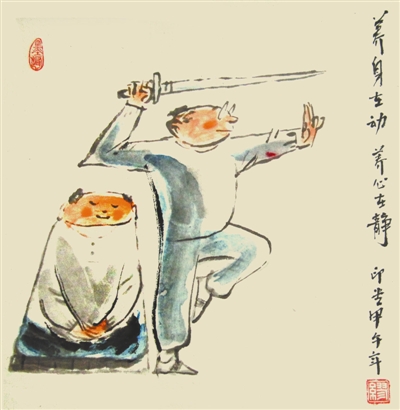 养身在动 养心在静 印堂甲午年